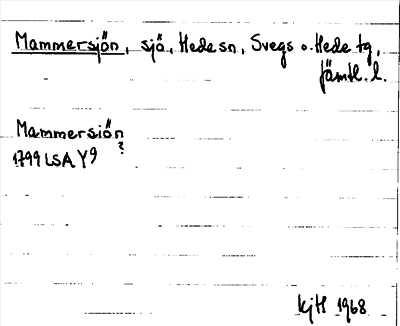 Mammersjön, sjö, Hede sn, Svegs o. Hede tg,
Jämtl. l.
Mammersiön
?
1799 LSA Y9
KjH 1968